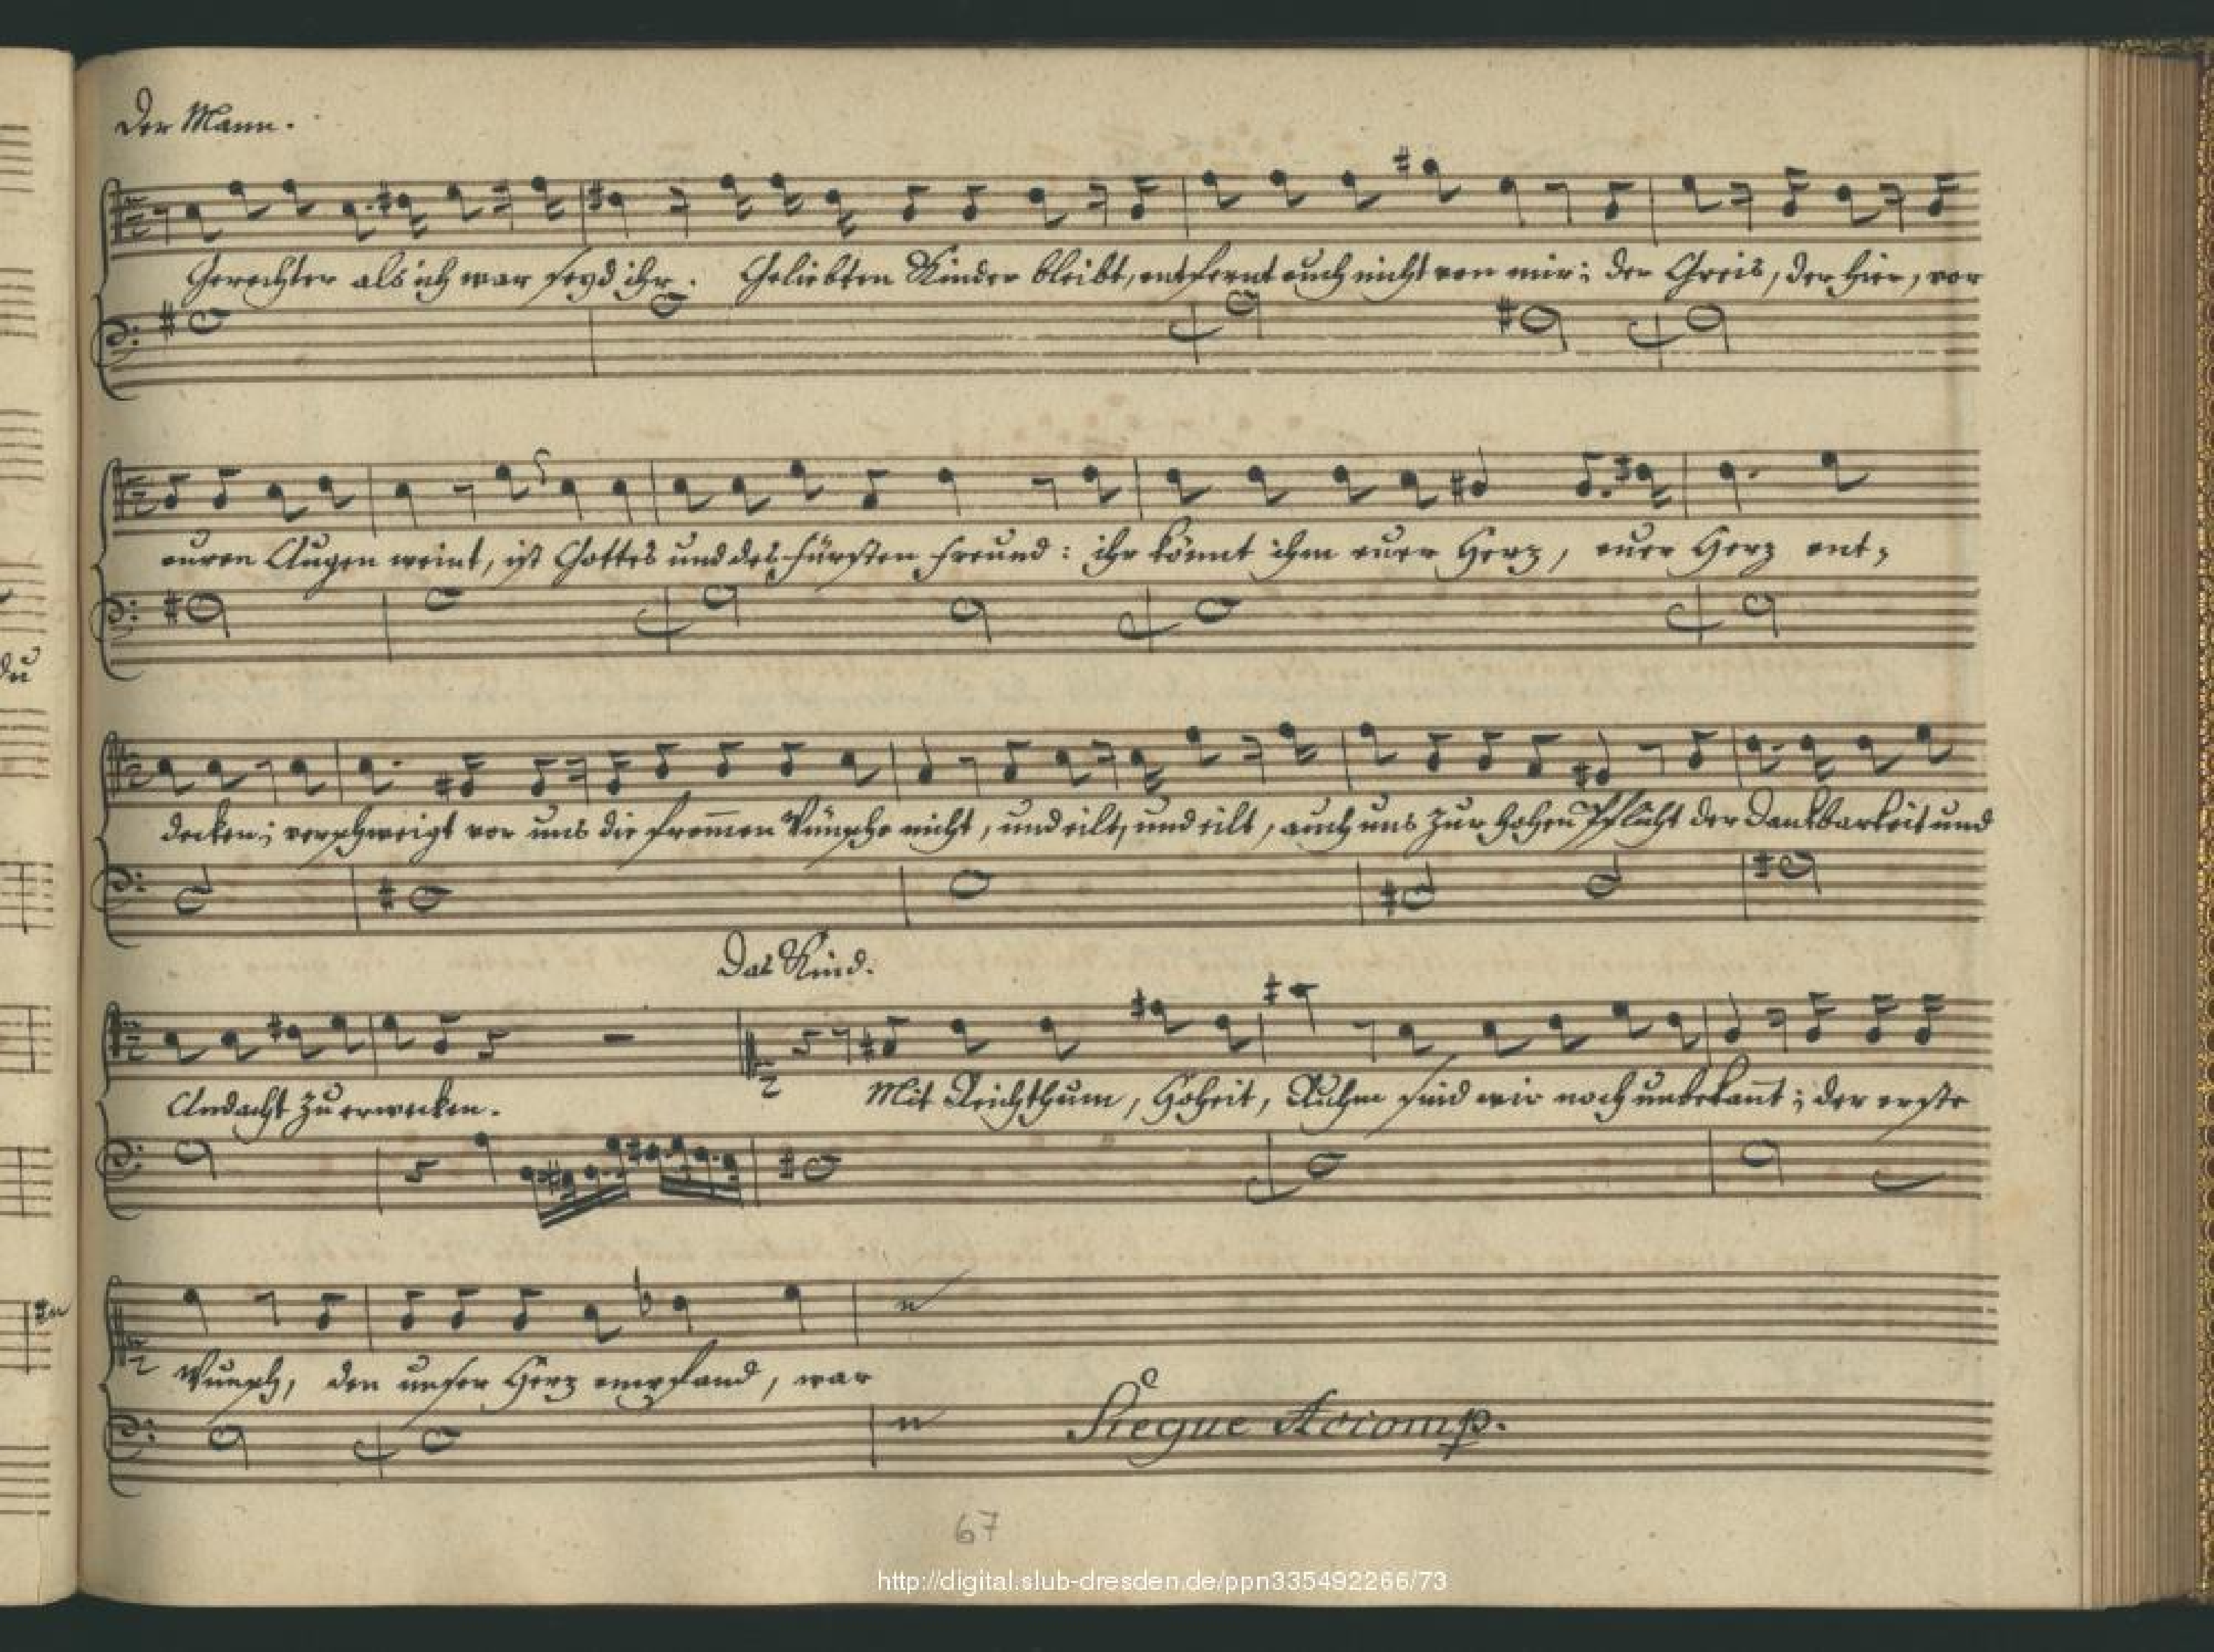 Der Mann.
Gerechter als ich war seyd ihr. Geliebten Kinder bleibt, entfernt euch nicht von mir; der Greis, der hier, vor
euren Augen weint, ist Gottes und des Fürsten Freund: ihr könnt ihm euer Herz, euer Herz ent-
decken; verschweigt vor uns die from̄en Wünsche nicht, und eilt, und eilt, auch uns zur hohen Pflicht der Dankbarkeit und
Das Kind.
Andacht zu erwecken. Mit Reichthum, Hoheit, Ruhm sind wir noch unbekan̄t; der erste
Wunsch, den unser Herz empfand, war
Siegue Accomp.
67
http://digital.slub-dresden.de/ppn335492266/73